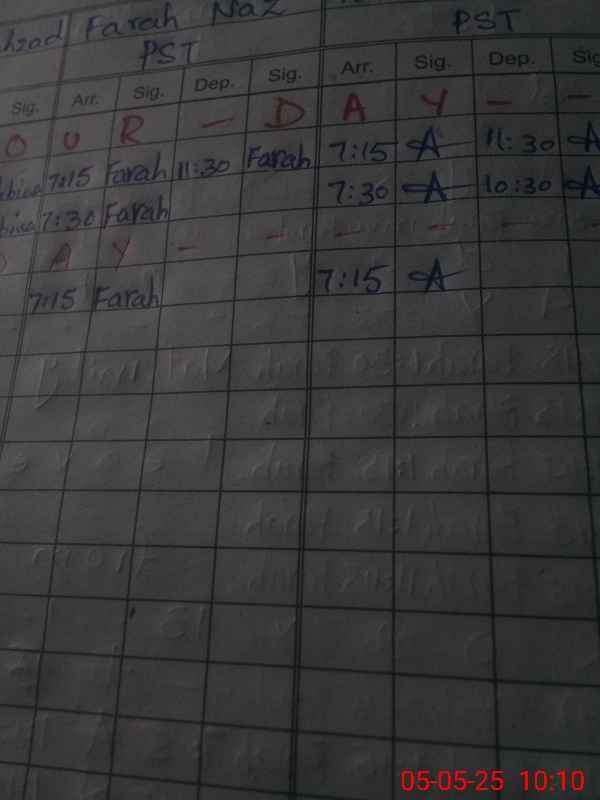 hzad Farah Naz
PST PST
Sig. Arr. Sig. Dep. Sig. Arr. Sig. Dep. Sig
O U R - D A Y - -
7:15 Farah 11:30 Farah 7:15 A 11:30 A
7:30 Farah 7:30 A 10:30 A
A Y - - - - - -
7:15 Farah 7:15 A
05-05-25 10:10